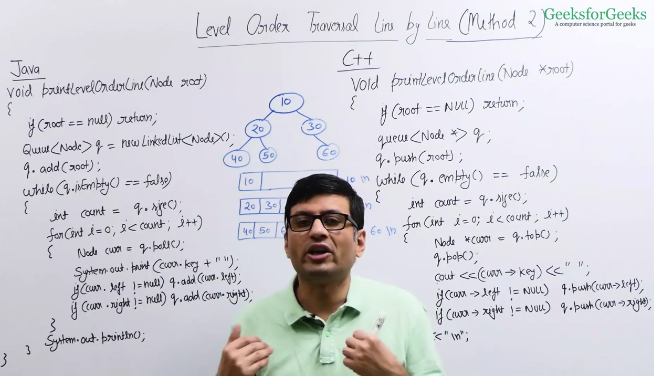 Level Order Traversal Line by Line (Method 2)
GeeksforGeeks
A computer science portal for geeks
Java
void printLevelOrderLine(Node root)
{
if(root == null) return;
Queue<Node> q = new LinkedList<Node>();
q.add(root);
while (q.isEmpty() == false)
{
int count = q.size();
for(int i=0; i<count; i++)
{
Node curr = q.poll();
System.out.print(curr.key + " ");
if(curr.left != null) q.add(curr.left);
if(curr.right != null) q.add(curr.right);
}
System.out.println();
}
}
10
20 30
40 50 60
10
10 \n
20 30
\n
40 50
60 \n
C++
void printLevelOrderLine(Node *root)
{
if(root == NULL) return;
queue<Node *> q;
q.push(root);
while (q.empty() == false)
{
int count = q.size();
for(int i=0; i<count; i++)
{
Node *curr = q.top();
q.pop();
cout <<(curr→key)<<" ";
if(curr→left != NULL) q.push(curr→left);
if(curr→right != NULL) q.push(curr→right);
<"\n";